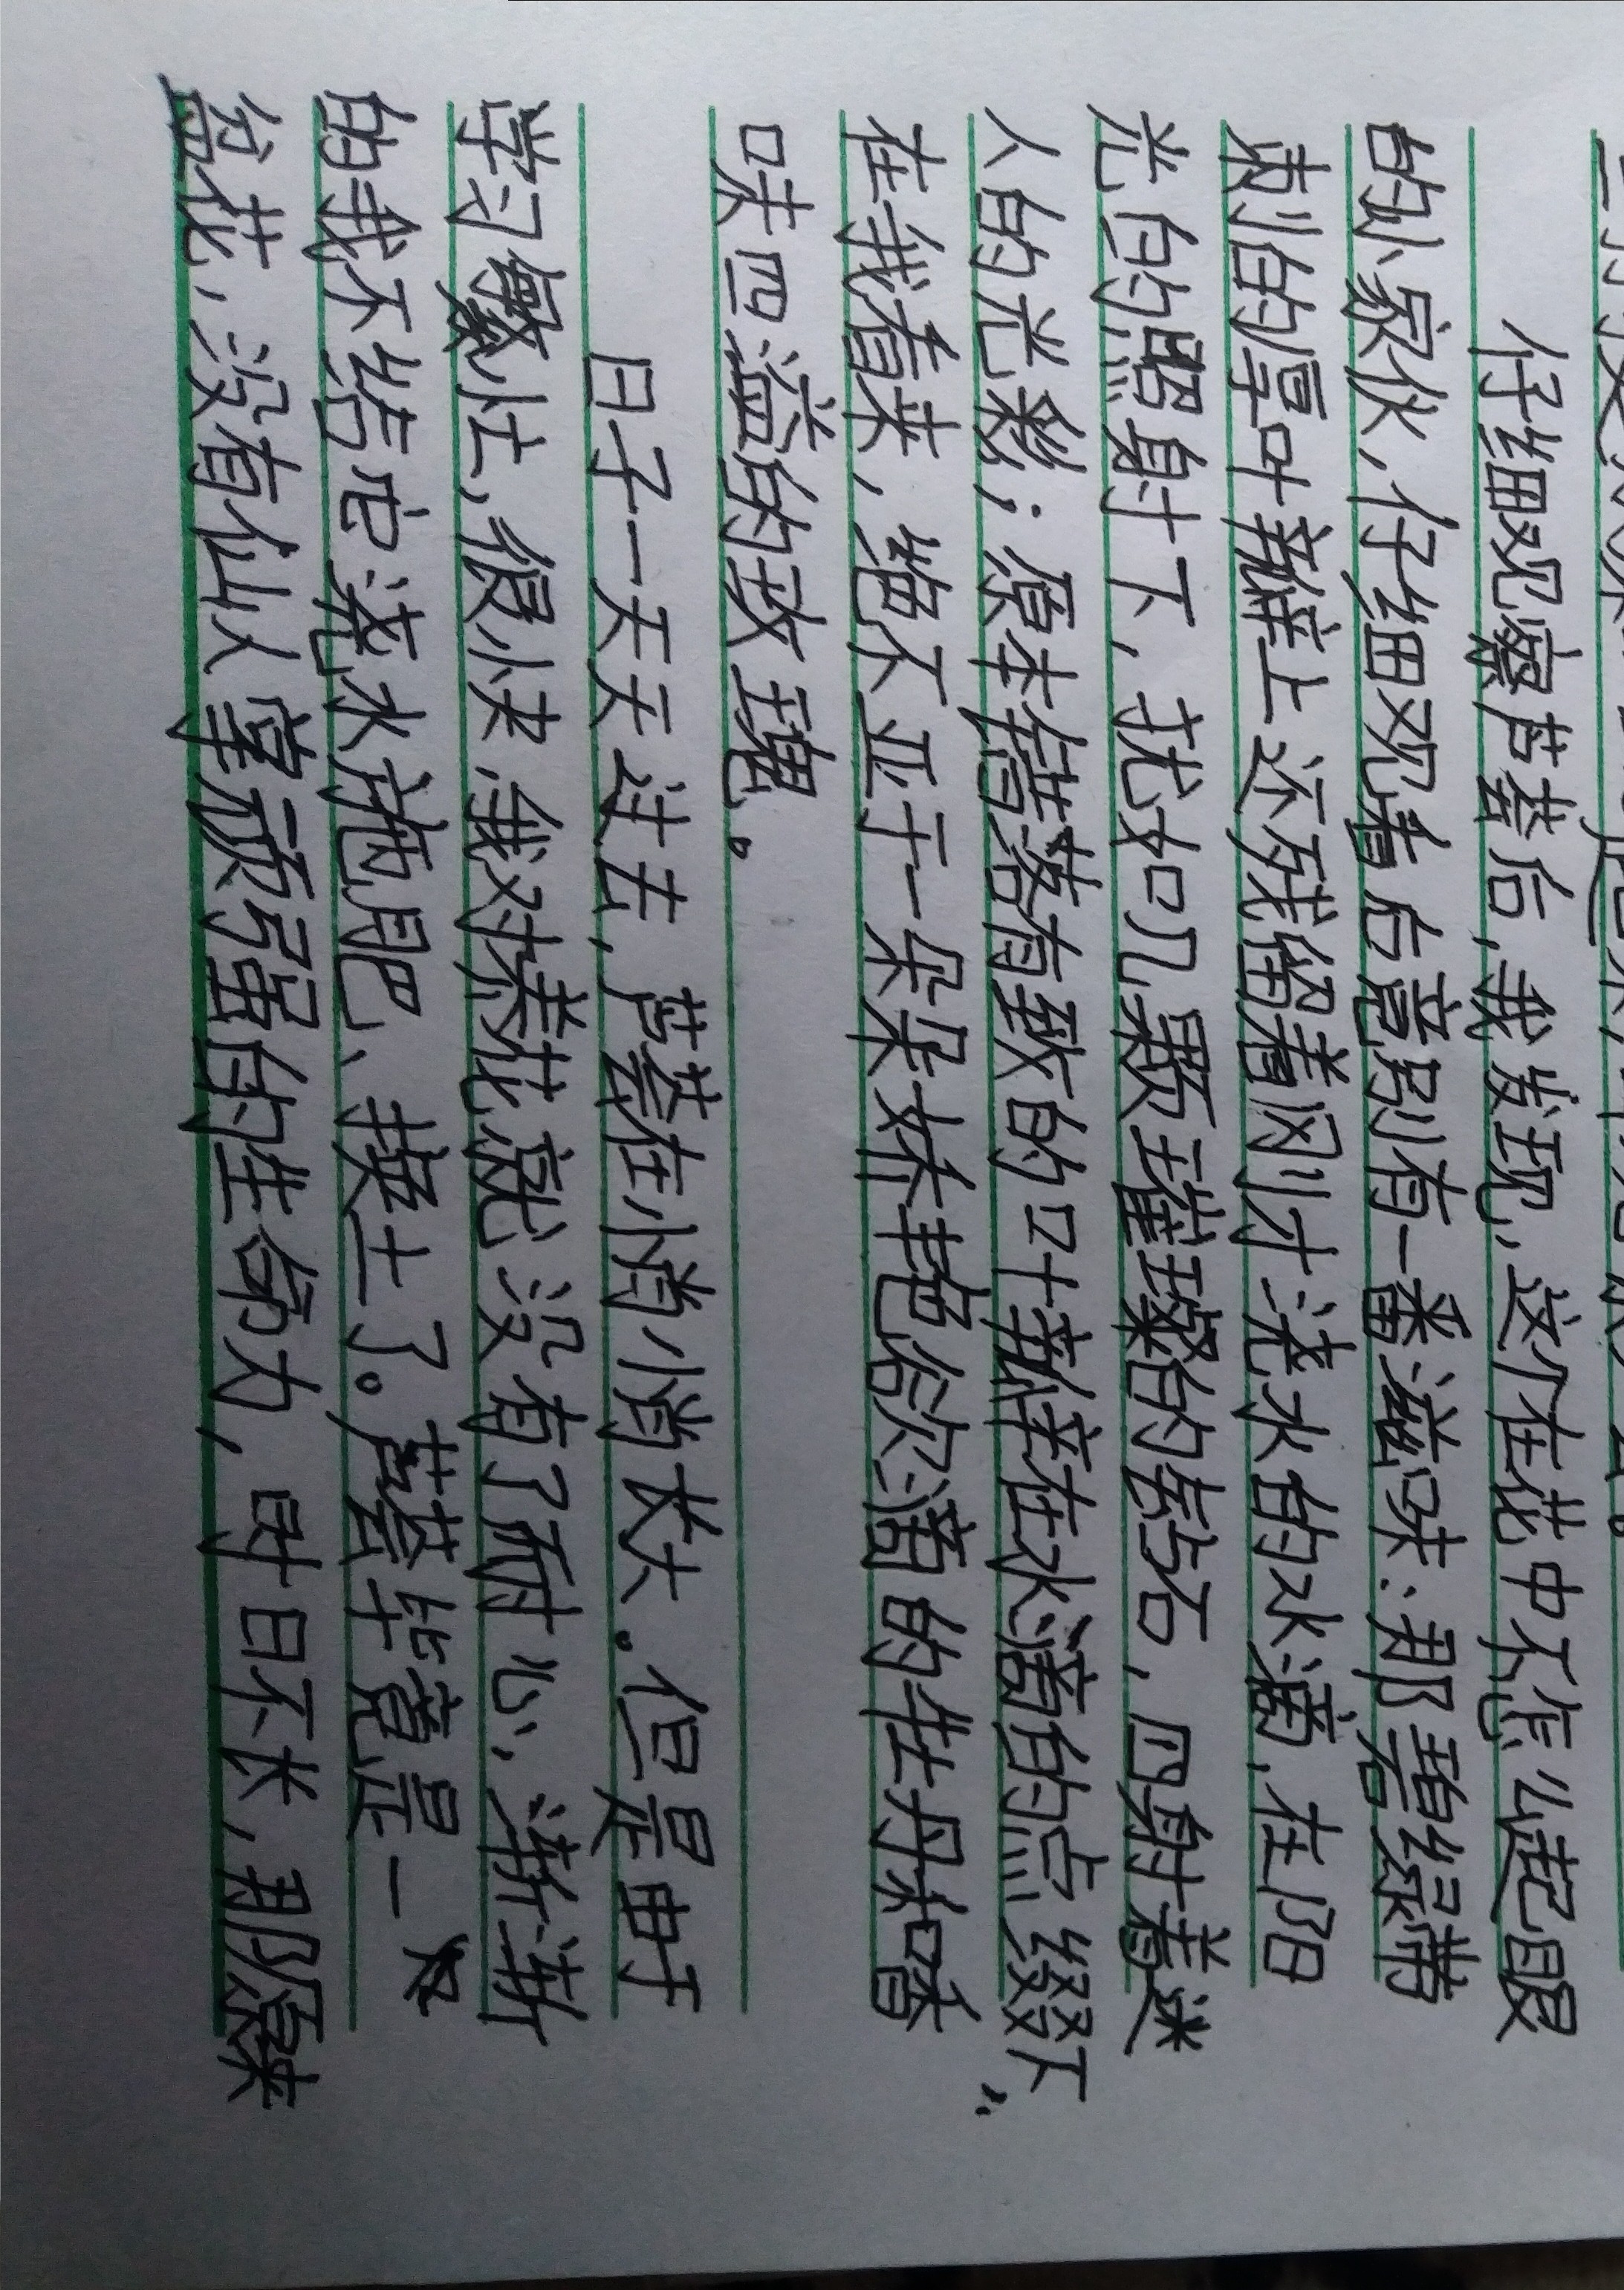 仔细观察芦荟后,我发现,这个在花中不怎么起眼
的小家伙,仔细观看后竟别有一番滋味:那碧绿带
刺的厚叶瓣上还残留着刚才浇水的水滴,在阳
光的照射下,犹如几颗璀璨的钻石,四射着迷
人的光彩;原本错落有致的叶瓣在水滴的点缀下,
在我看来,绝不亚于一朵朵娇艳欲滴的牡丹和香
味四溢的玫瑰。
日子一天天过去,芦荟在悄悄长大。但是由于
学习繁忙,很快,我对养花就没有了耐心,渐渐
的我不给它浇水施肥、换土了。芦荟毕竟是一
盆花,没有仙人掌顽强的生命力,时日不长,那原来